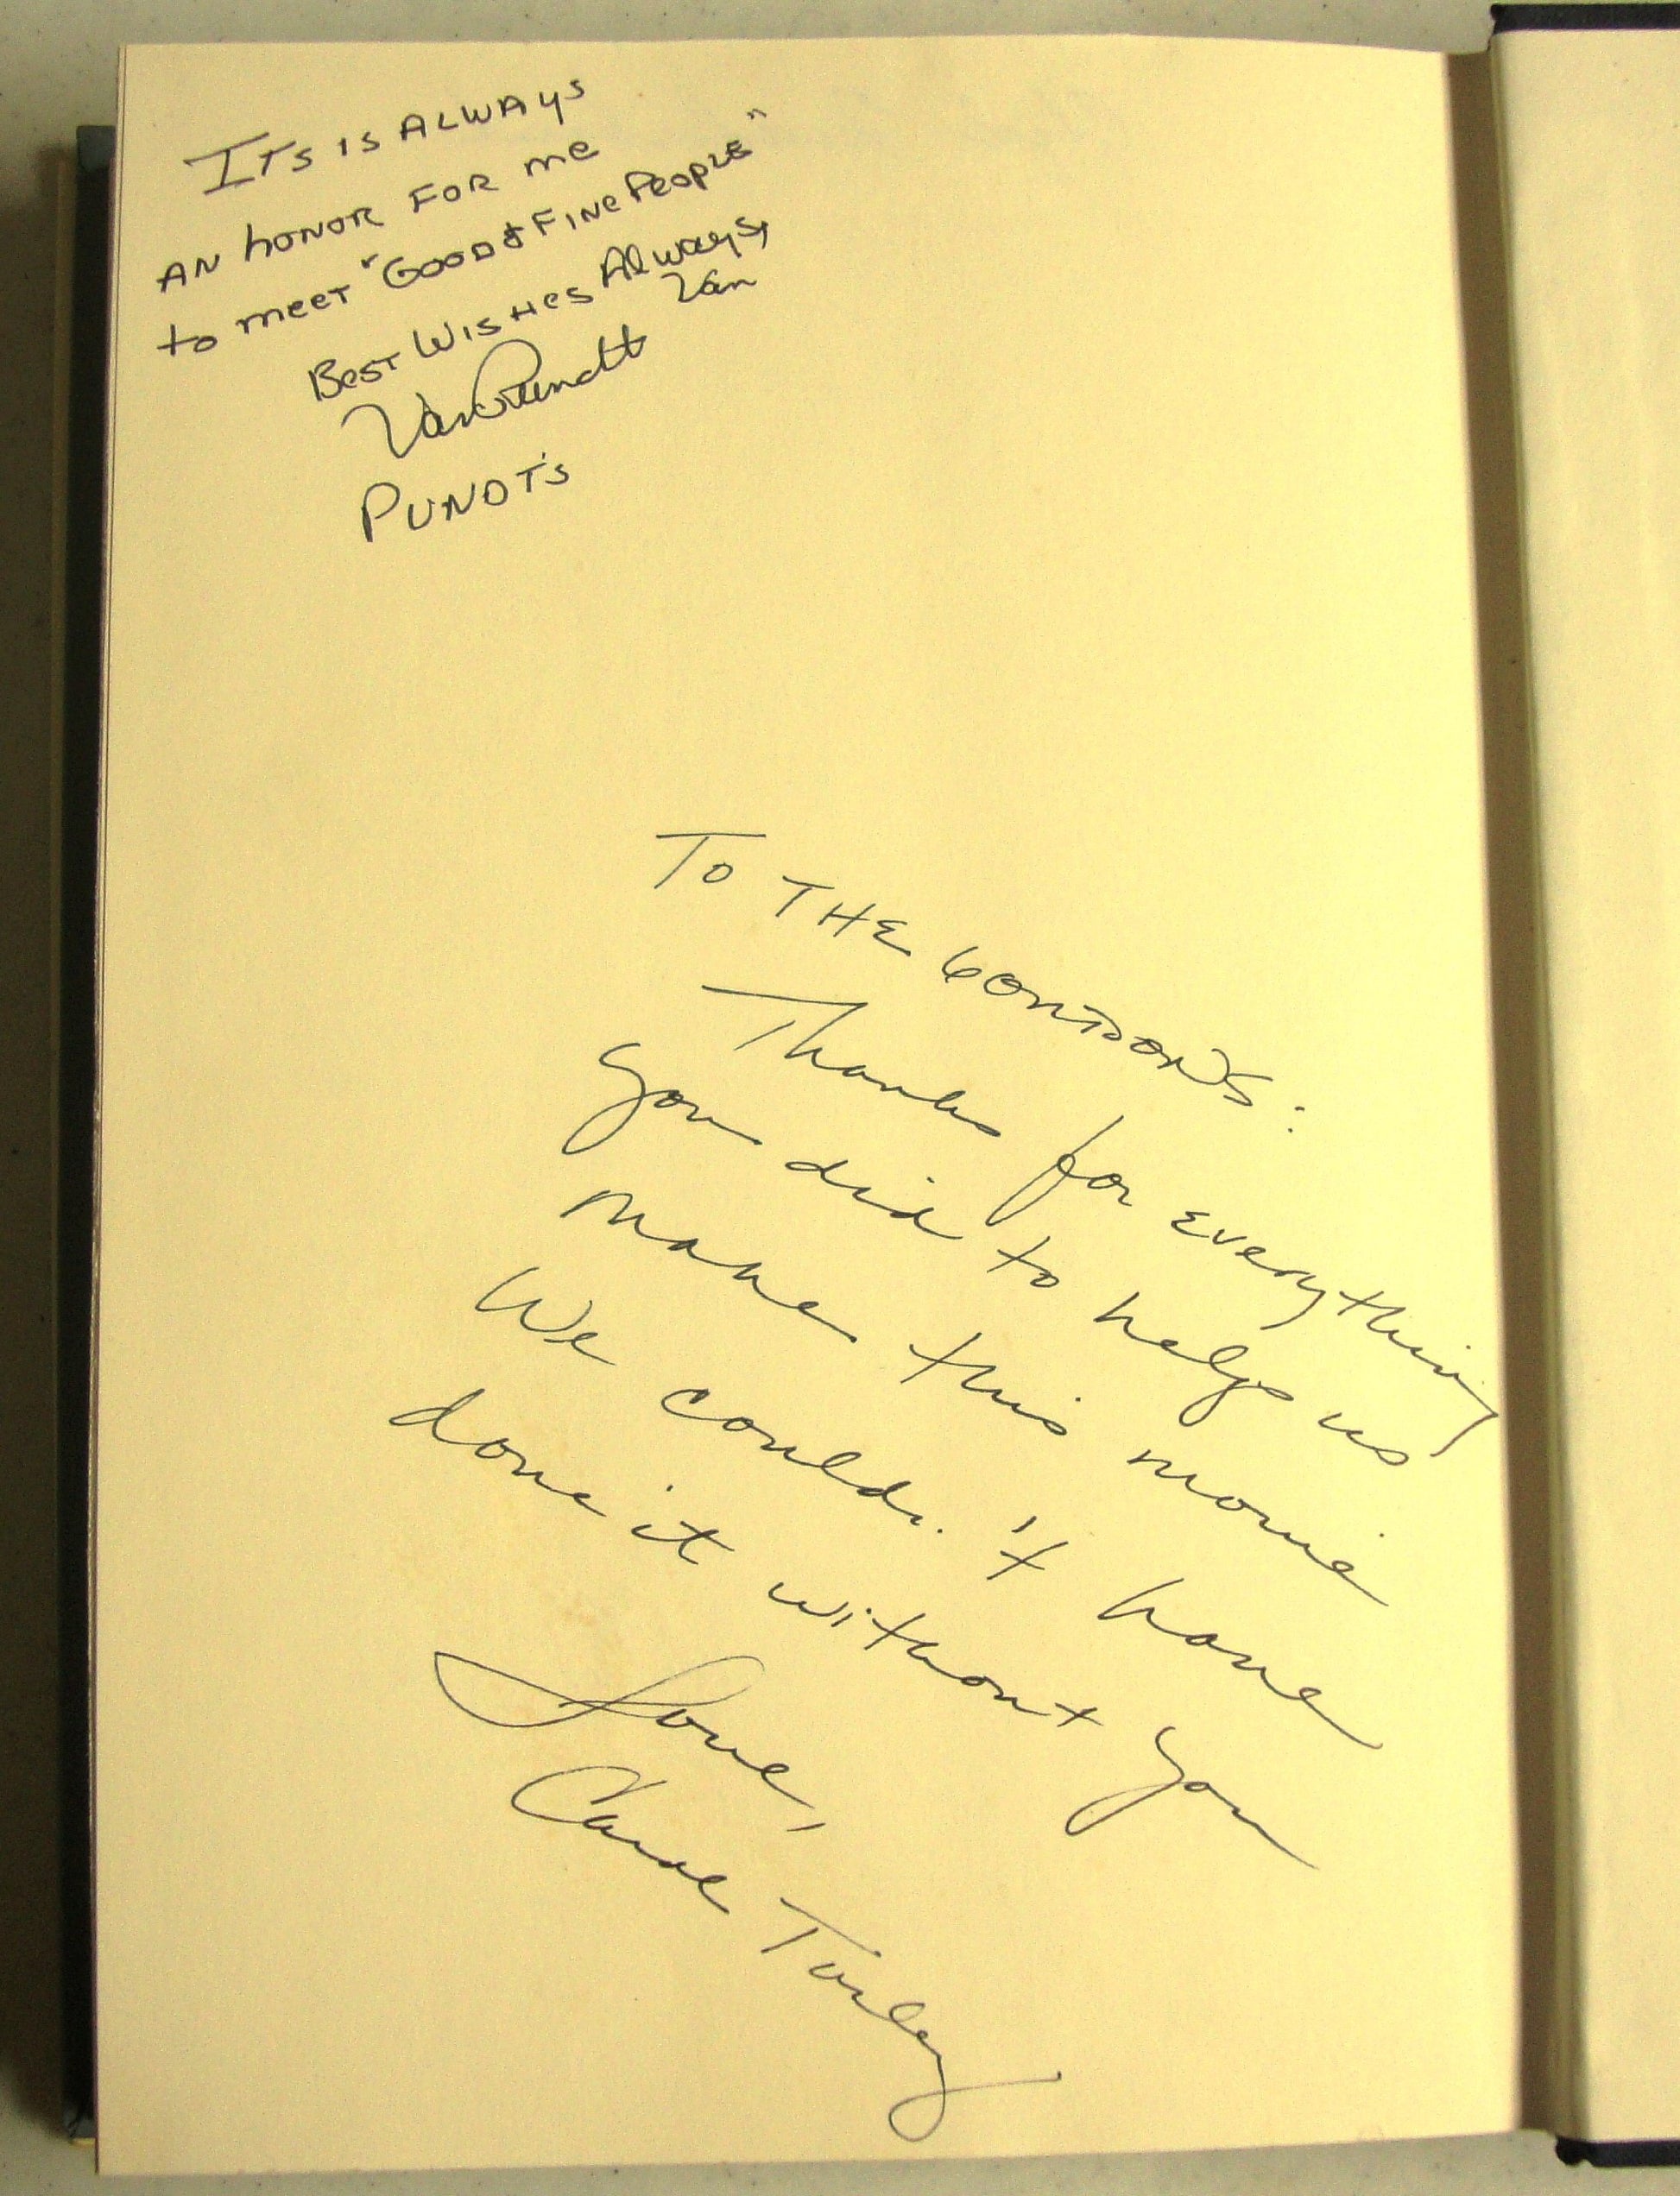 ITS IS ALWAYS
AN HONOR FOR me
to meeT "GOOD & FINE PeOPLE"
BesT WISHes Always,
Van
Van Pundt
PUNDT'S
TO THE GORDON'S:
Thanks for everything
you did to help us
make this movie
We could. 't have
done it without you
Love,
Turley